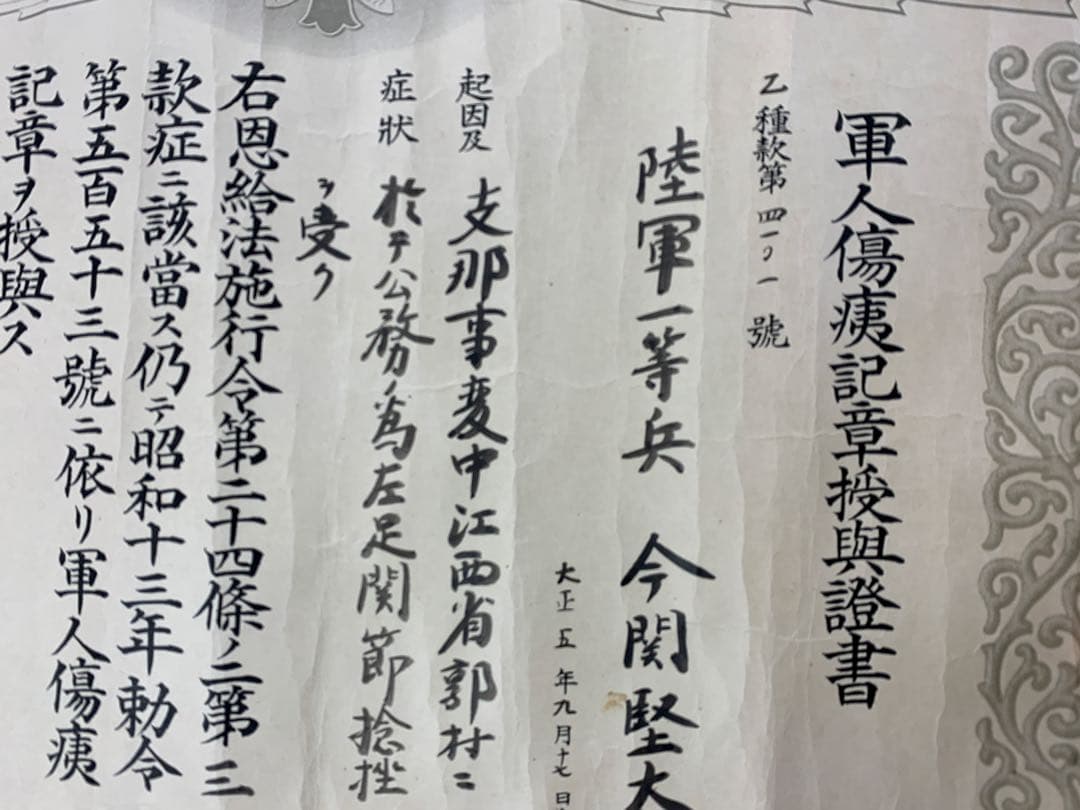 軍人傷痍記章授與證書
乙種款第四一〇一號
陸軍一等兵 今関堅太
大正五年九月十七日
起因及 支那事変中江西省郭村ニ
症狀 於テ公務ノ為左足関節捻挫
ヲ受ク
右恩給法施行令第二十四條ノ二第三
款症ニ該當ス仍テ昭和十三年勅令
第五百五十三號ニ依リ軍人傷痍
記章ヲ授與ス